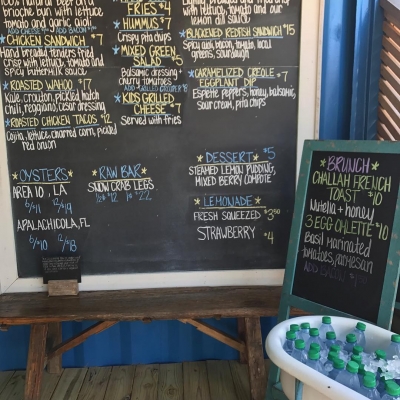 100% natural beef on a
brioche bun with lettuce
tomato garlic aioli
*CHICKEN SANDWICH* $7
Hand breaded tenders fried
crisp with lettuce, tomato and
spicy buttermilk sauce
*ROASTED WAHOO* $7
Kale, crouton, pickled
Chili, reggiano, cesar dressing
*ROASTED CHICKEN TACOS* $12
Cojita, lettuce, charred corn, pickled
red onion
FRIES $4
*HUMMUS* $7
Crispy pita chips
*MIXED GREEN
SALAD* $5
Balsamic dressing +
cherry tomatoes
*KIDS GRILLED
CHEESE* $7
Served with fries
with lettuce, tomato and our
lemon dill sauce
*BLACKENED REDFISH SANDWICH* $15
Spicy aioli, bacon, tomato, local
greens, sourdough
*CARAMELIZED CREOLE
EGGPLANT DIP* $7
Espelette peppers, honey, balsamic,
sour cream, pita chips
*OYSTERS*
AREA 10, LA
6/$11 12/$19
APALACHICOLA, FL
6/$10 12/$18
*RAW BAR*
SNOW CRAB LEGS
½# $12 1# $22
*DESSERT* $5
STEAMED LEMON PUDDING,
MIXED BERRY COMPOTE
*LEMONADE*
FRESH SQUEEZED $3.50
STRAWBERRY $4
*BRUNCH*
CHALLAH FRENCH
TOAST $10
Nutella + honey
3 EGG OMLETTE $10
Basil marinated
tomatoes, parmesan
ADD BACON